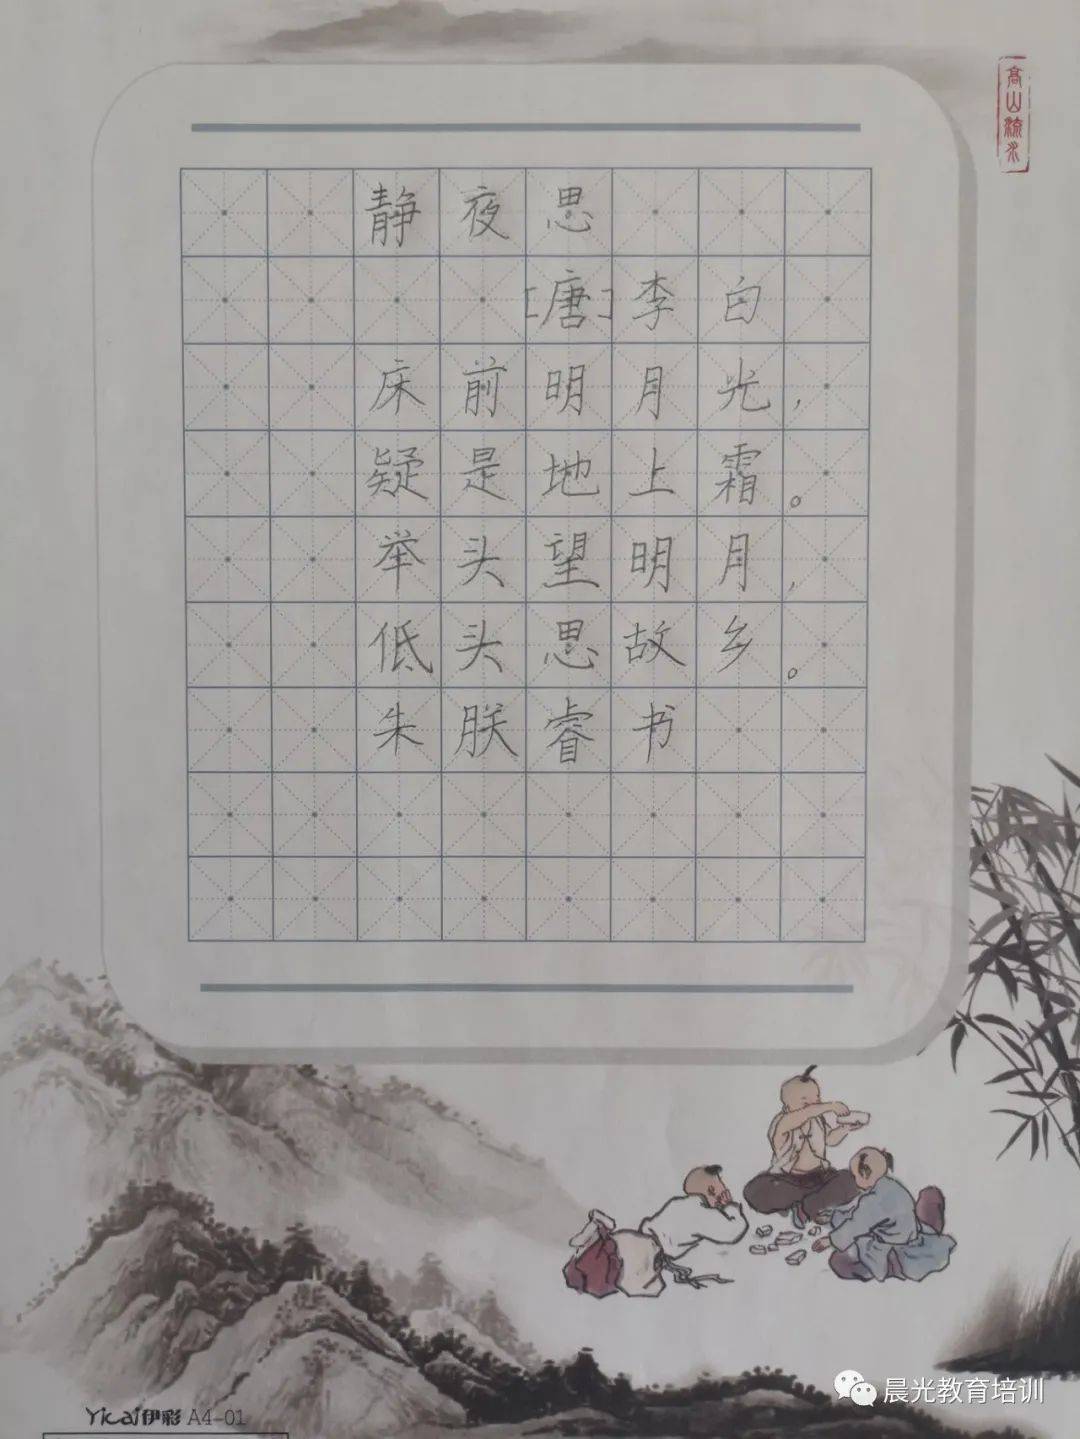 高山流水
静夜思
[唐]李白
床前明月光，
疑是地上霜。
举头望明月，
低头思故乡。
朱朕睿书
Yicai伊彩 A4-01
晨光教育培训